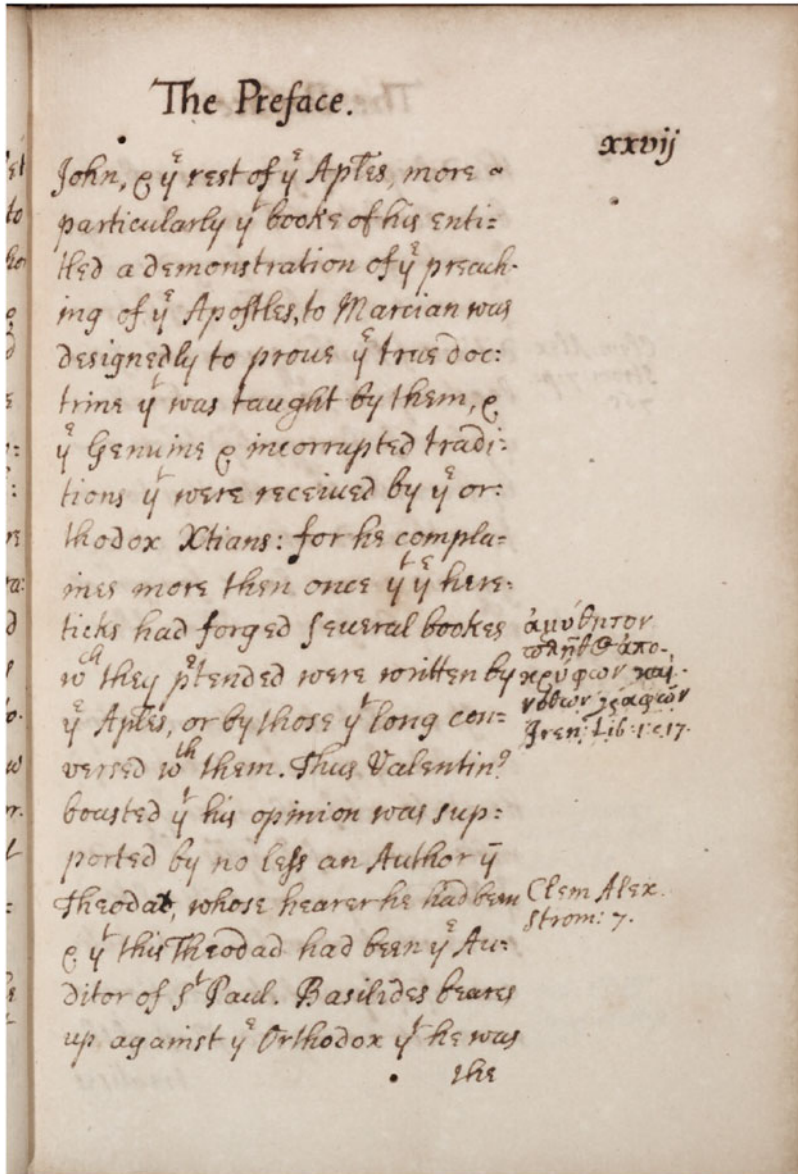 The Preface.
xxvij
John, & yᵉ rest of yᵉ Apłes, more ~
particularly yᵗ booke of his enti=
tled a demonstration of yᵉ preach-
ing of yᵉ Apostles, to Marcian was
designedly to proue yᵉ true doc:
trine yᵗ was taught by them, &
yᵉ Genuine & incorrupted tradi:
tions yᵗ were receiued by yᵉ or:
thodox Xtians: for he compla=
ines more then once yᵗ yᵉ here:
ticks had forged seueral bookes
wᶜʰ they pᵉtended were written by
yᵉ Apłes, or by those yᵗ long con=
versed wᵗʰ them. Thus Valentinꝰ
boasted yᵗ his opinion was sup:
ported by no less an Author yⁿ
Theodat, whose hearer he had been
& yᵗ this Theodad had been yᵉ Au:
ditor of Sᵗ Paul. Basilides beares
up against yᵉ Orthodox yᵗ he was
the
ἀμύθητον
πλῆθος ἀπο-
κρύφων καὶ
νόθων γραφῶν
Iren: Lib: 1: c. 17.
Clem Alex.
Strom: 7.